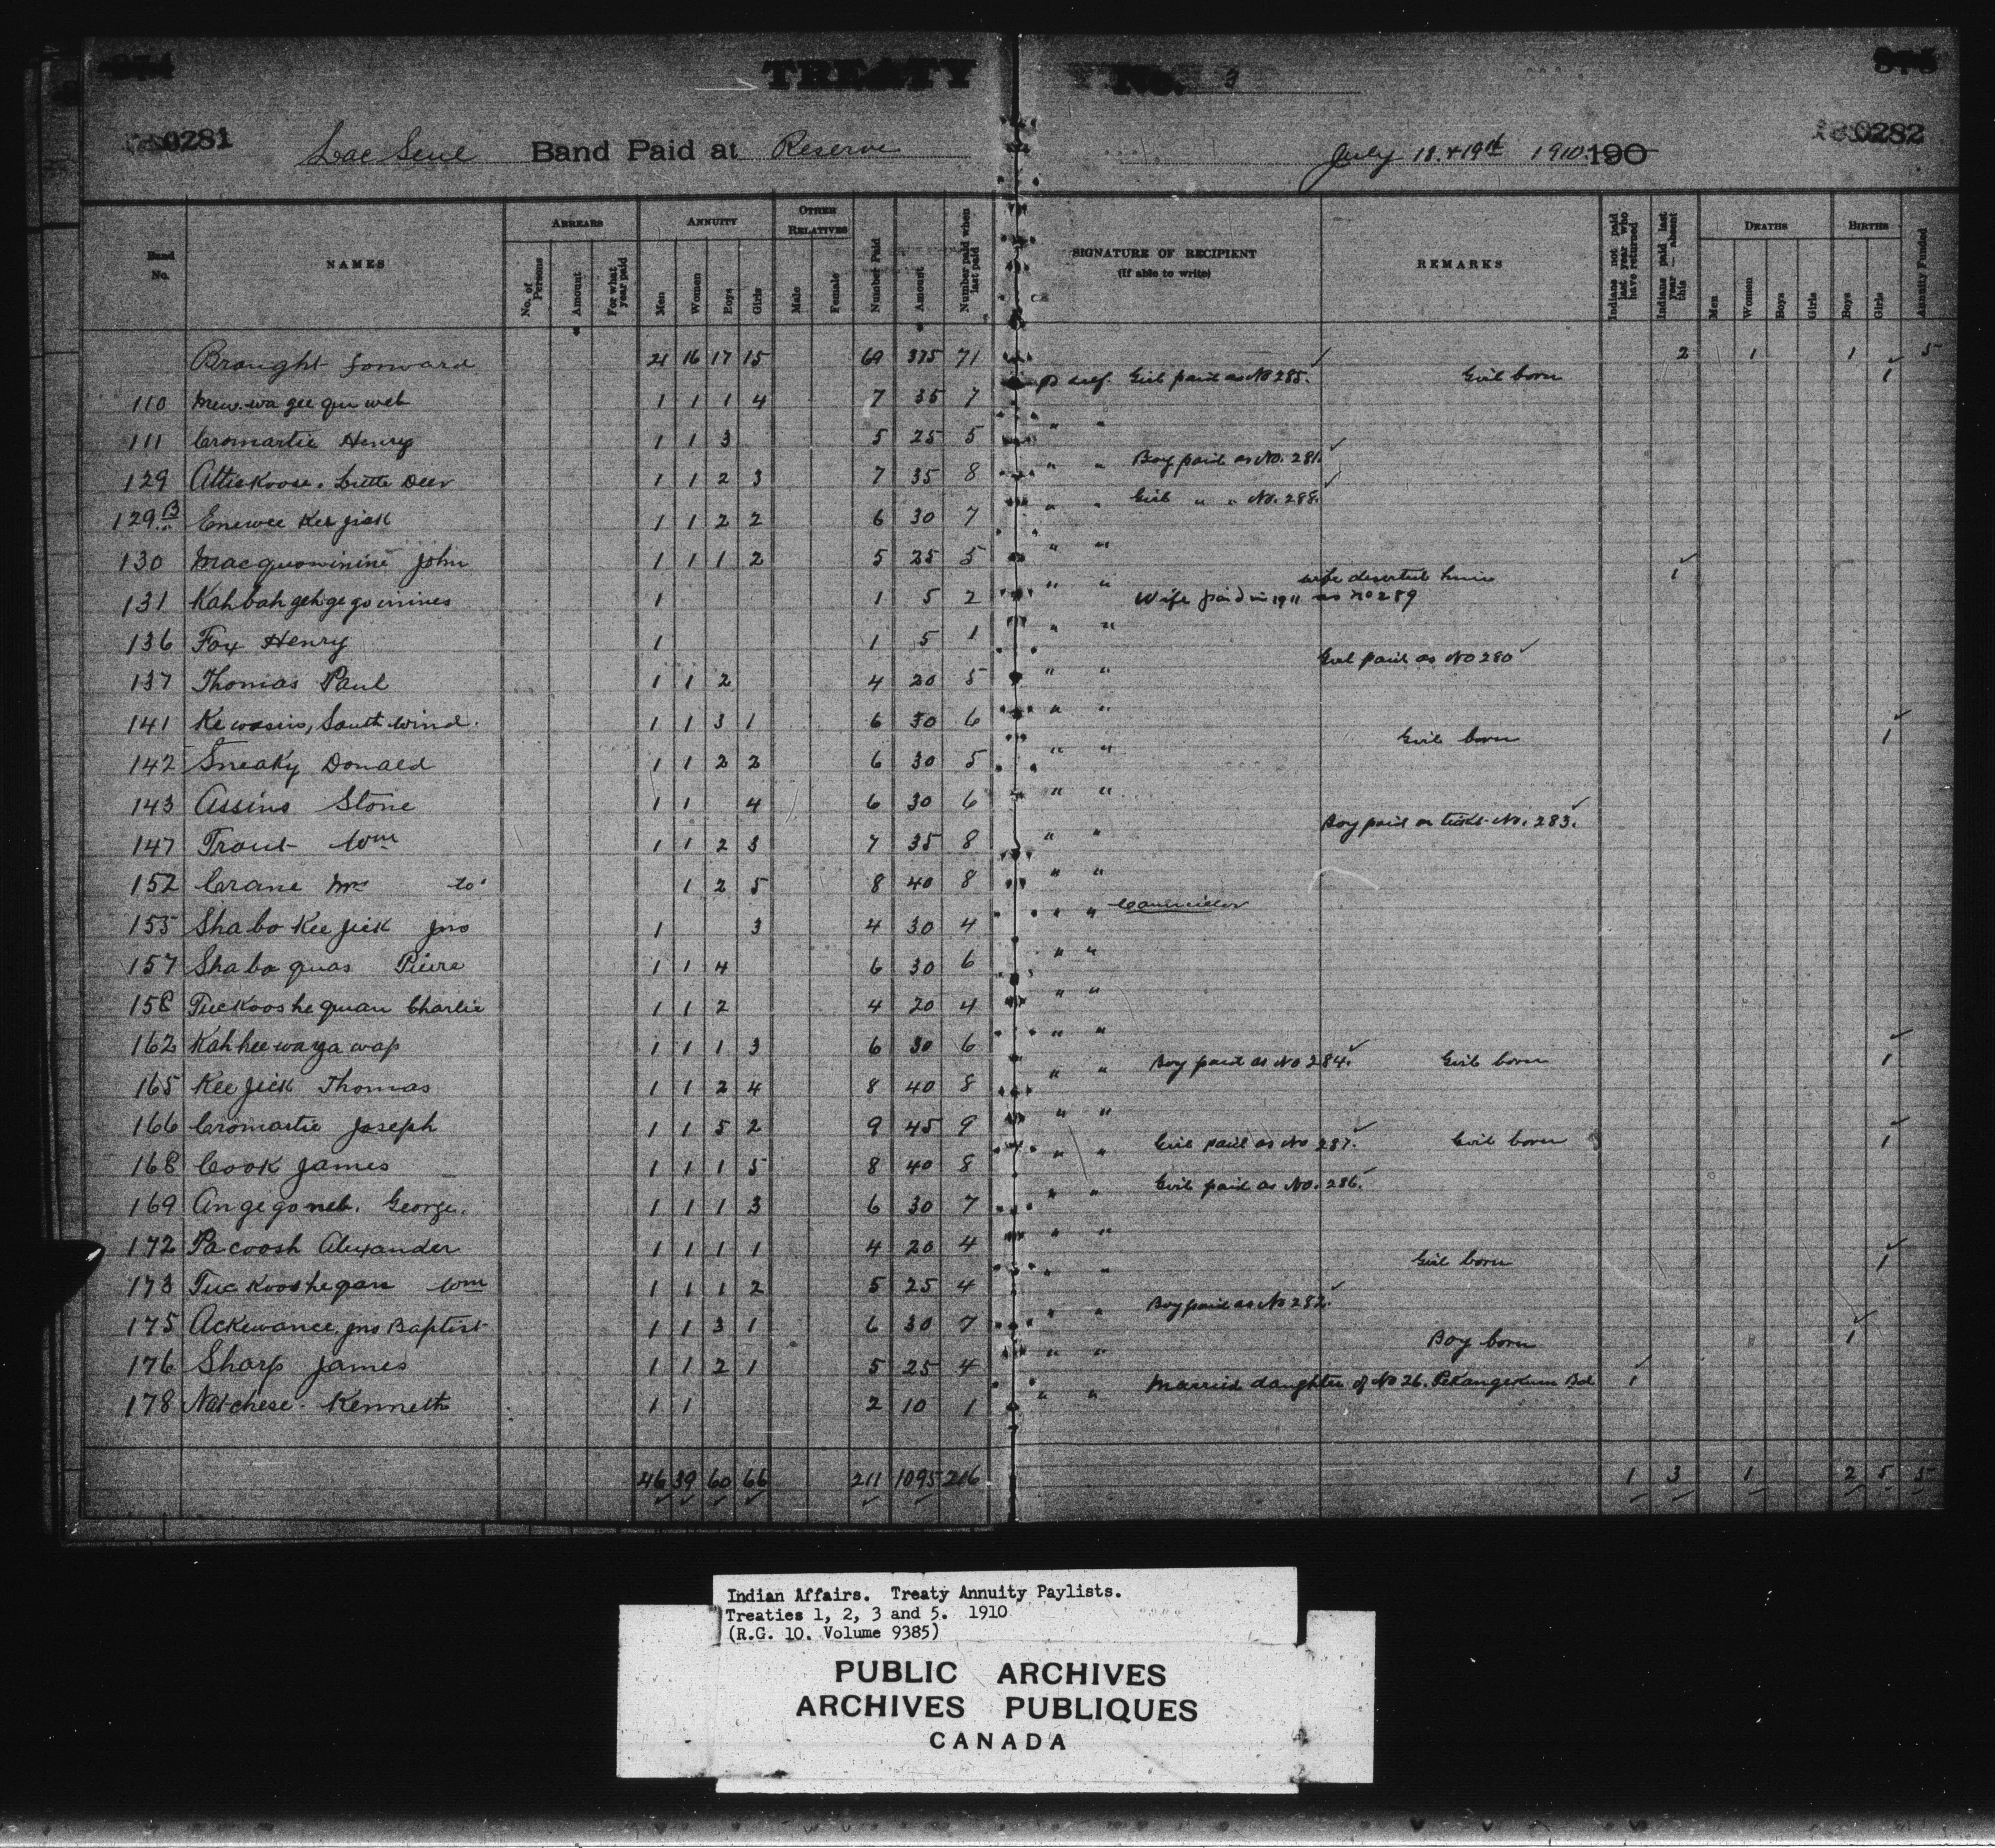 TREATY No. 3
0281 0282
Lac Seul Band Paid at Reserve July 18 & 19th 1910 190
Band No. NAMES ARREARS No. of Persons Amount For what year paid ANNUITY Men Women Boys Girls OTHER RELATIVES Male Female Number Paid Amount Number paid when last paid SIGNATURE OF RECIPIENT (if able to write) REMARKS Indians not paid last year who have returned Indians paid last year — absent this DEATHS Men Women Boys Girls BIRTHS Boys Girls Annuity Funded
Brought forward 21 16 17 15 69 375 71 2 1 1 5
110 Mew.wa gee qu web 1 1 1 4 7 35 7 Girl paid as No 285. Girl born 1
111 Cromartie Henry 1 1 3 5 25 5 " "
129 Attickoose. Little Deer 1 1 2 3 7 35 8 " " Boy paid as No. 281.
129 B Enewee Kee jick 1 1 2 2 6 30 7 " " Girl " " No. 288.
130 Macquowinini John 1 1 1 2 5 25 5 " "
131 Kahbahgehgegominies 1 1 5 2 " " wife deserted him 1
Wife paid in 1911 as no 289
136 Fox Henry 1 1 5 1 " "
137 Thomas Paul 1 1 2 4 20 5 " " Girl paid as No 280
141 Kewasin, South Wind. 1 1 3 1 6 30 6 " "
142 Sneaky Donald 1 1 2 2 6 30 5 " " Girl born 1
143 Assins Stone 1 1 4 6 30 6 " "
147 Trout Wm 1 1 2 3 7 35 8 " " Boy paid on tickt. No. 283.
152 Crane Mrs 1 2 5 8 40 8 " "
155 Shabo Kee Jick Jno 1 3 4 30 4 " " Councillor
157 Shaba quas Pierre 1 1 4 6 30 6 " "
158 Tuckooshequan Charlie 1 1 2 4 20 4 " "
162 Kahkeewayawap 1 1 1 3 6 30 6 " "
165 Kee Jick Thomas 1 1 2 4 8 40 8 " " Boy paid as No 284. Girl born 1
166 Cromartie Joseph 1 1 5 2 9 45 9 " "
168 Cook James 1 1 1 5 8 40 8 " " Girl paid as No 287. Girl born 1
169 Angegoneb. George. 1 1 1 3 6 30 7 " " Girl paid as No. 286.
172 Pacoosh Alexander 1 1 1 1 4 20 4 " "
173 Tuckooshegan Wm 1 1 1 2 5 25 4 " " Girl born 1
175 Ackewance, Jno Baptist 1 1 3 1 6 30 7 " " Boy paid as No 282.
176 Sharp James 1 1 2 1 5 25 4 " " Boy born 1
178 Natchese. Kenneth 1 1 2 10 1 " " Married daughter of No 26. Pekangekum Bd 1
46 39 60 66 211 1095 216 1 3 1 2 5 5
Indian Affairs. Treaty Annuity Paylists.
Treaties 1, 2, 3 and 5. 1910
(R.G. 10. Volume 9385)
PUBLIC ARCHIVES
ARCHIVES PUBLIQUES
CANADA